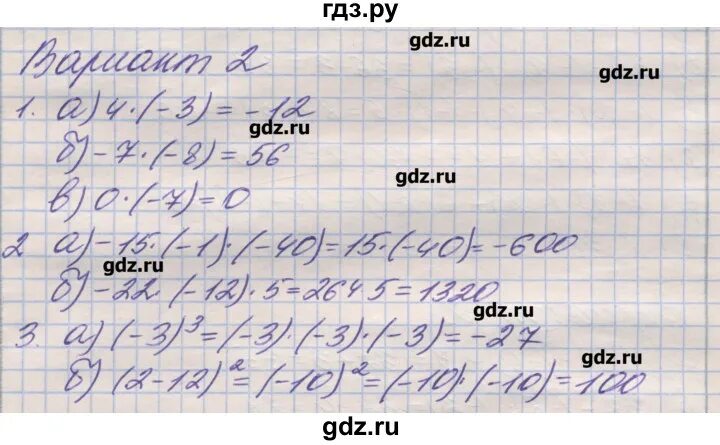 гдз.ру
Вариант 2
gdz.ru
gdz.ru
1. а) 4·(-3) = -12
gdz.ru
б) -7·(-8) = 56
gdz.ru
в) 0·(-7) = 0
2 а) -15·(-1)·(-40) = 15·(-40) = -600
gdz.ru
б) -22·(-12)·5 = 264 5 = 1320
gdz.ru
3. а) (-3)³ = (-3)·(-3)·(-3) = -27
gdz.ru
б) (2-12)² = (-10)² = (-10)·(-10) = 100
gdz.ru